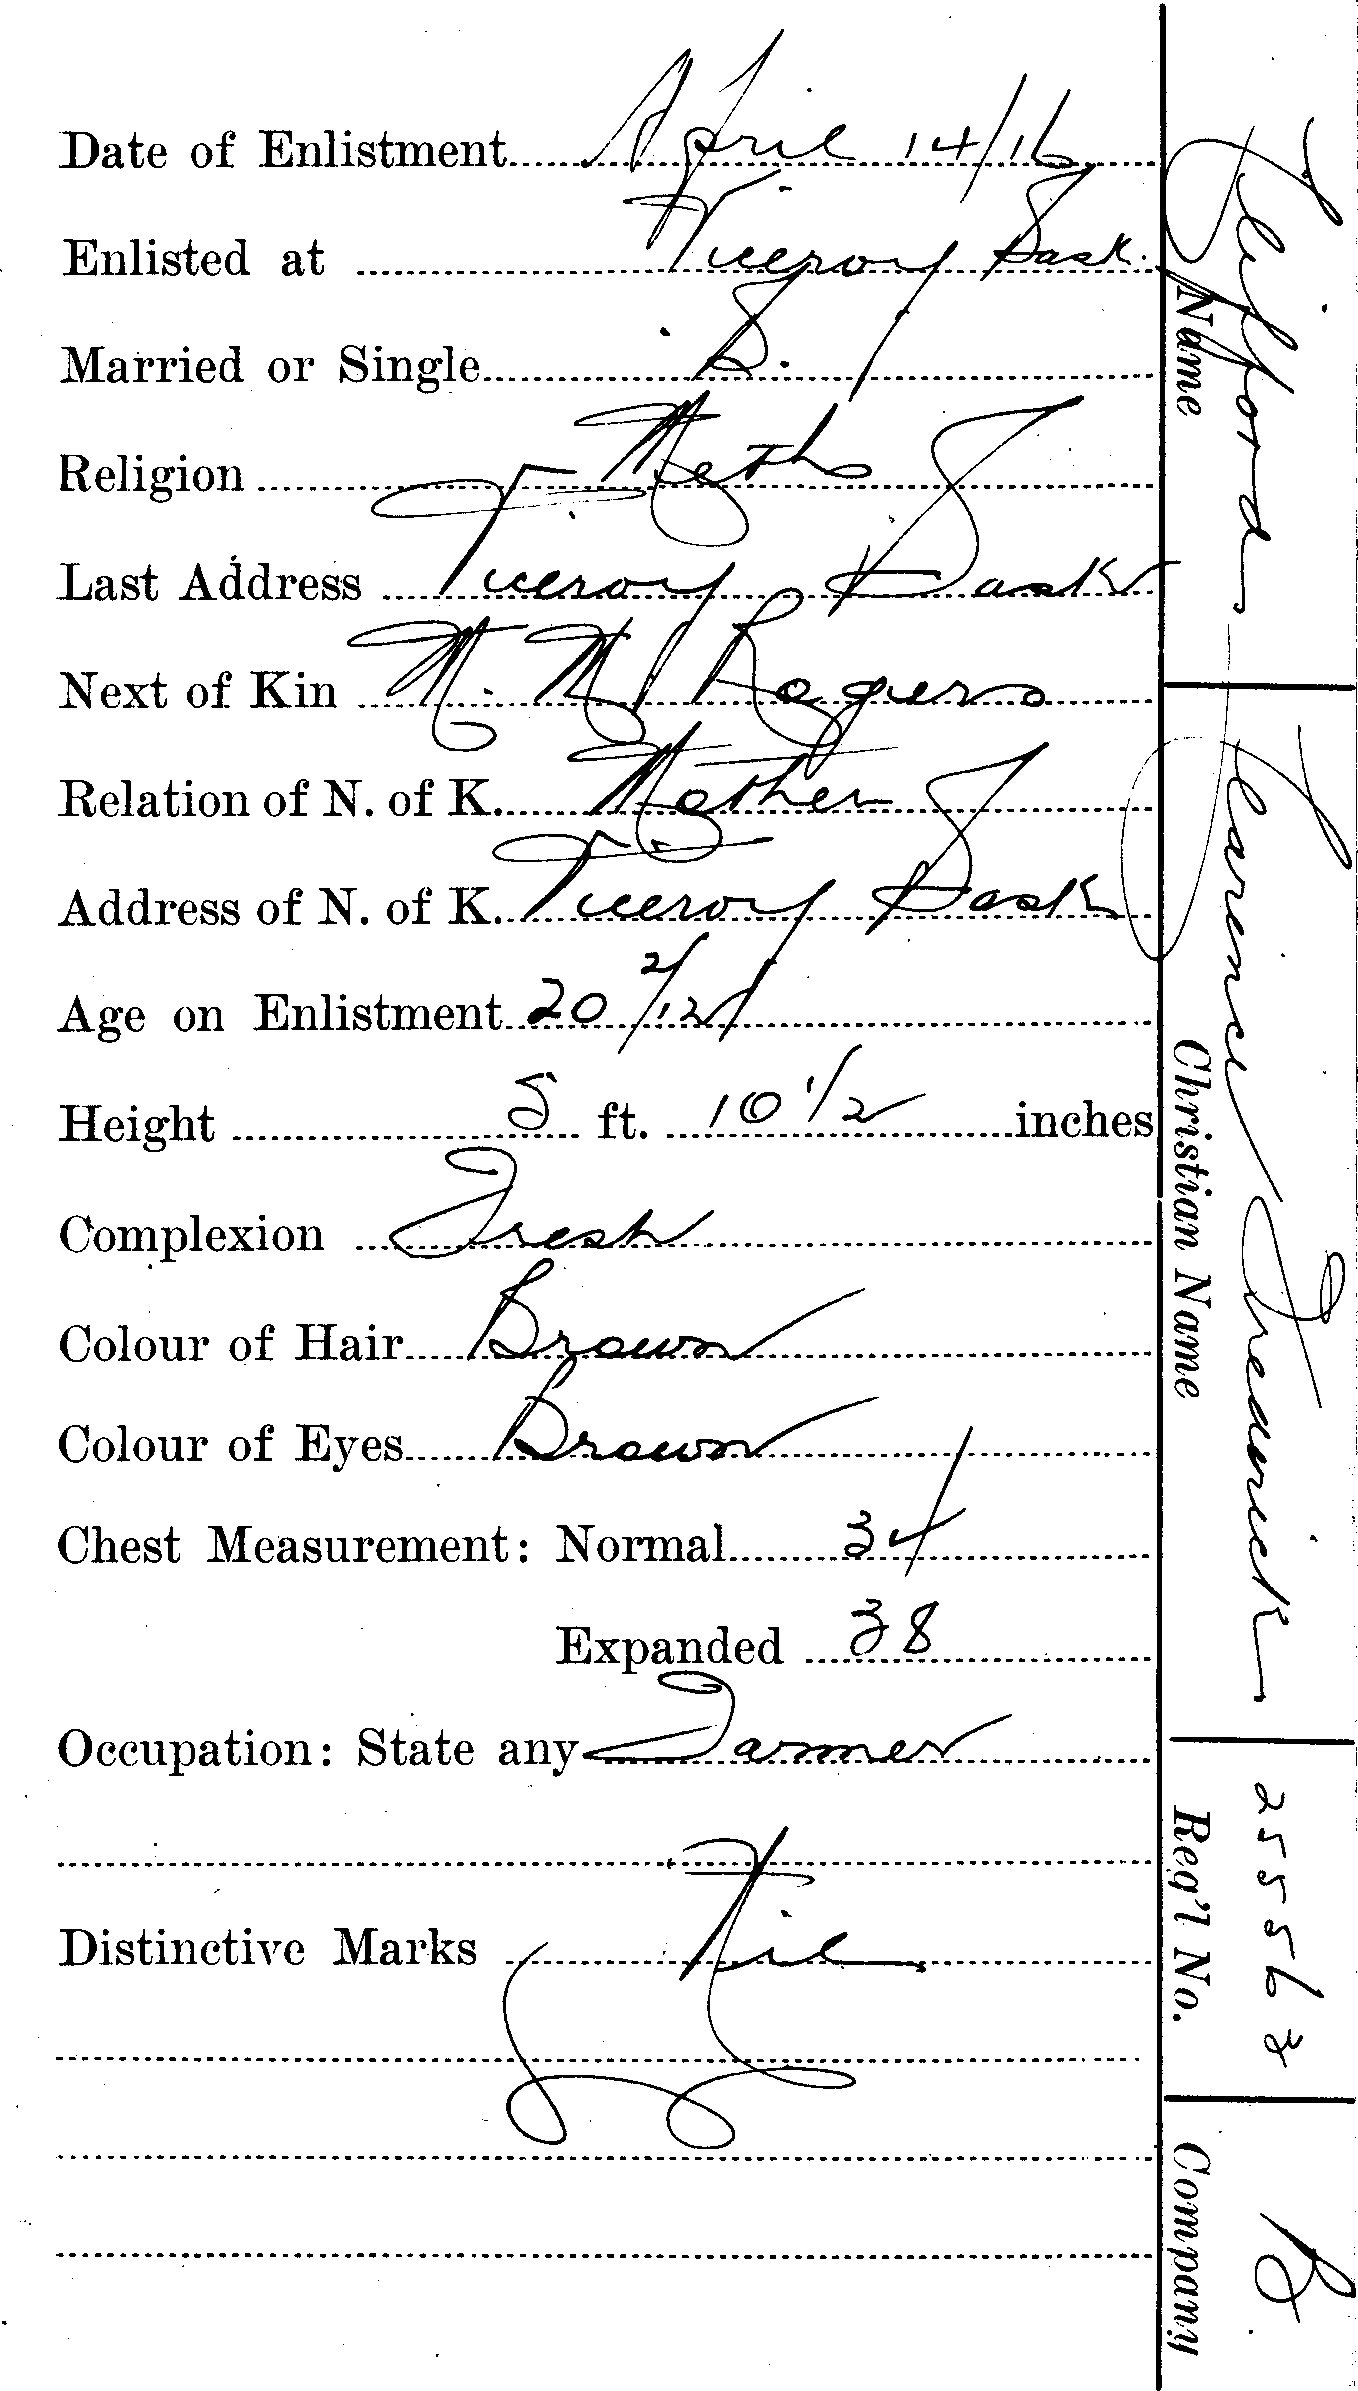 Date of Enlistment April 14/16
Enlisted at Viceroy Sask.
Married or Single S.
Religion Meth
Last Address Viceroy Sask
Next of Kin M. M. Rogers
Relation of N. of K. Mother
Address of N. of K. Viceroy Sask
Age on Enlistment 20 2/12
Height 5 ft. 10 1/2 inches
Complexion Fresh
Colour of Hair Brown
Colour of Eyes Brown
Chest Measurement: Normal 34
Expanded 38
Occupation: State any Farmer
Distinctive Marks Nil
Name
Clarence Frederick
Christian Name
255563
Reg'l No.
B
Company